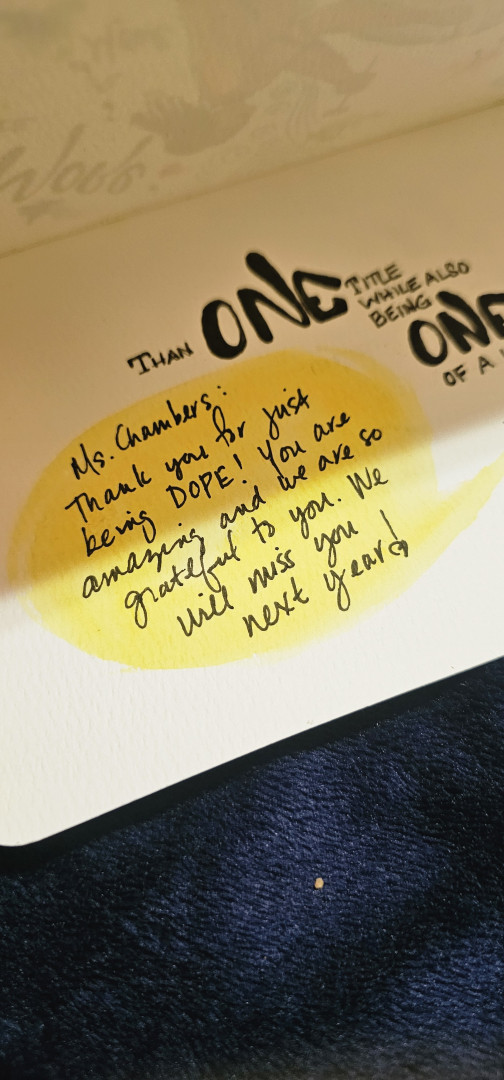 Woob.
THAN ONE TITLE
WHILE ALSO
BEING ONE
OF A
Ms. Chambers:
Thank you for just
being DOPE! You are
amazing and we are so
grateful to you. We
will miss you
next year!